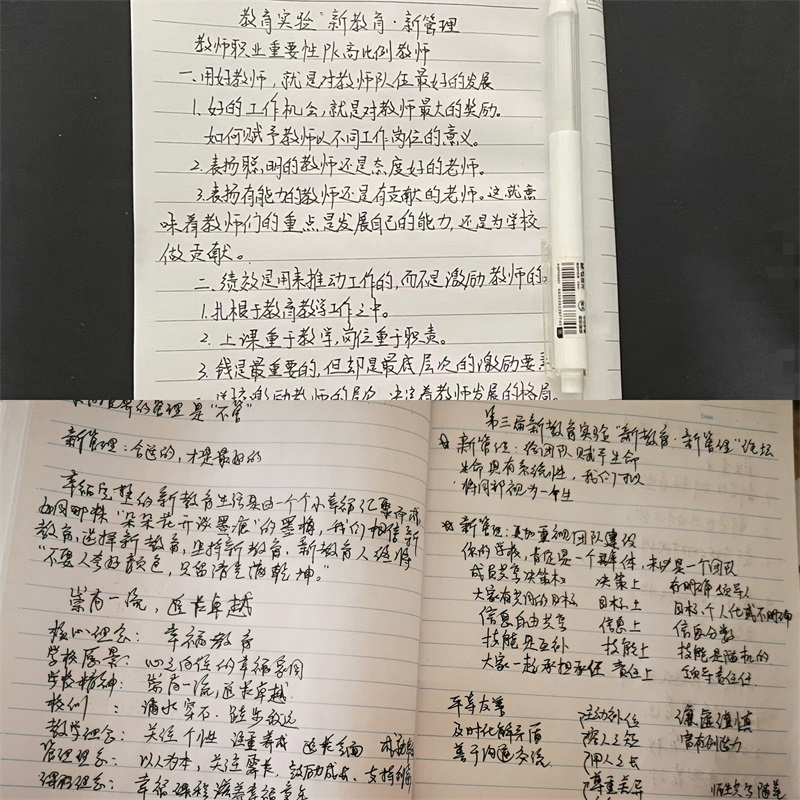 教育实验"新教育·新管理
教师职业重要性PK高比例教师
一、用好教师，就是对教师队伍最好的发展
1.好的工作机会，就是对教师最大的奖励。
如何赋予教师以不同工作岗位的意义。
2.表扬聪明的教师还是态度好的老师。
3.表扬有能力的教师还是有贡献的老师。这就意
味着教师们的重点是发展自己的能力，还是为学校
做贡献。
二、绩效是用来推动工作的，而不是激励教师的
1.扎根于教育教学工作之中。
2.上课重于教学，岗位重于职责。
3.钱是最重要的，但却是最底层次的激励要
激励教师的层次，决定着教师发展的格局。
管理是"不管"
新管理：合适的，才是最好的
幸福完整的新教育生活是由一个个小幸福汇聚而成
如同那株"朵朵花开淡墨痕"的墨梅，我们相信新
教育，选择新教育，坚持新教育，新教育人终将
"不要人夸好颜色，只留清气满乾坤。"
崇尚一流，追求卓越
核心理念：幸福教育
学校愿景：心之向往的幸福家园
学校精神：崇尚一流，追求卓越
校训：滴水穿石 跬步致远
教学理念：关注个性 注重养成
管理理念：以人为本，关注需求，鼓励成长，支持创新
课程理念：幸福课程滋养幸福童年
第三届新教育实验"新教育·新管理"论坛
新管理：给团队赋予生命
生命具有系统性，我们可以
将团队视为一个生
新管理：更加重视团队建设
你的学校，肯定是一个群体，未必是一个团队
成员共享决策权 决策上 有明确领导人
大家有共同的目标 目标上 目标个人化或不明确
信息自由共享 信息上 信息分散
技能是互补 技能上 技能是随机的
大家一起承担责任 责任上 领导责任
平等友善 主动补位 谦虚谨慎
及时化解矛盾 容人之短 富有创造力
善于沟通交流 用人之长
尊重差异 师生共写随笔